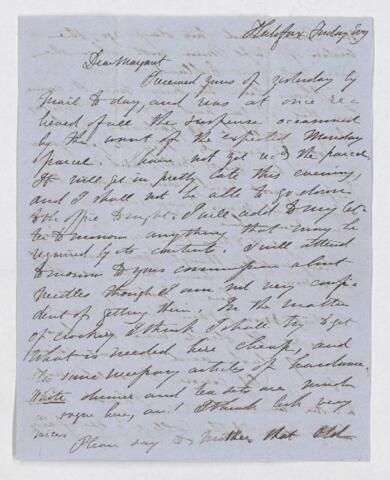 Halifax Friday Evg
Dear Margaret
Received yours of yesterday by
mail to day, and was at once re-
lieved of all the suspense occasioned
by the want of the expected Monday
parcel. I have not yet rec'd the parcel.
It will get in pretty late this evening,
and I shall not be able to go down
to the office to night. I will add to my let-
ter tomorrow anything that may be
required by its contents. I will attend
tomorrow to your commission about
needles though I am not very confi-
dent of getting them. In the matter
of crockery I think I shall try to get
what is needed here cheap, and
some necessary articles of hardware.
White dinner and tea sets are much
vogue here, and I think look very
nice.
Please say to Mother that Old